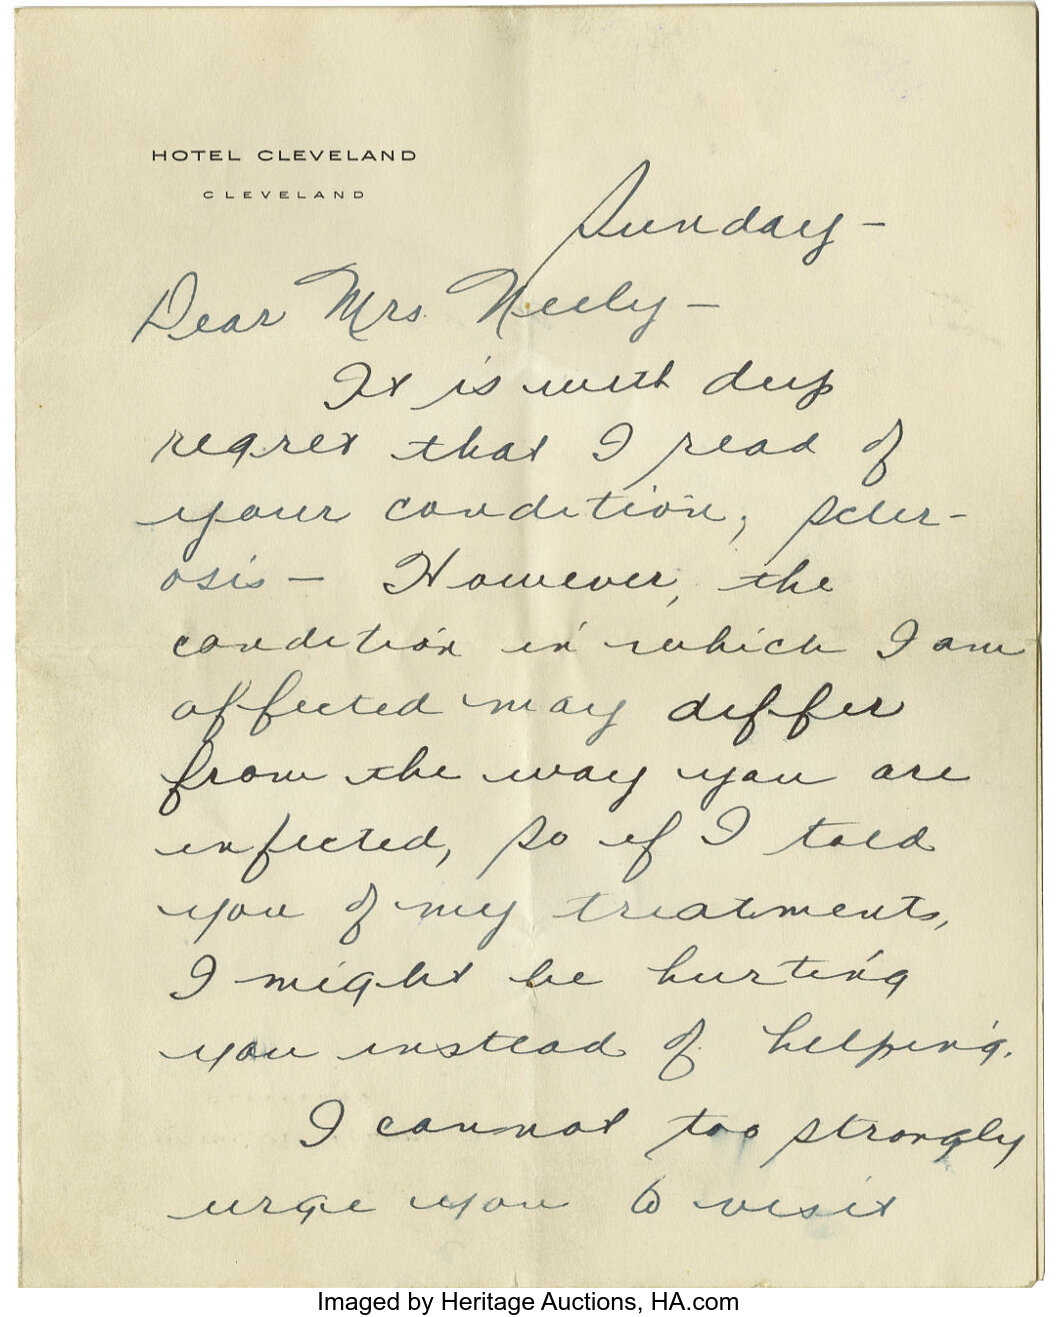 HOTEL CLEVELAND
CLEVELAND
Sunday –
Dear Mrs. Neely –
It is with deep
regret that I read of
your condition, scler-
osis – However, the
condition in which I am
affected may differ
from the way you are
infected, so if I told
you of my treatments,
I might be hurting
you instead of helping.
I cannot too strongly
urge you to visit
Imaged by Heritage Auctions, HA.com